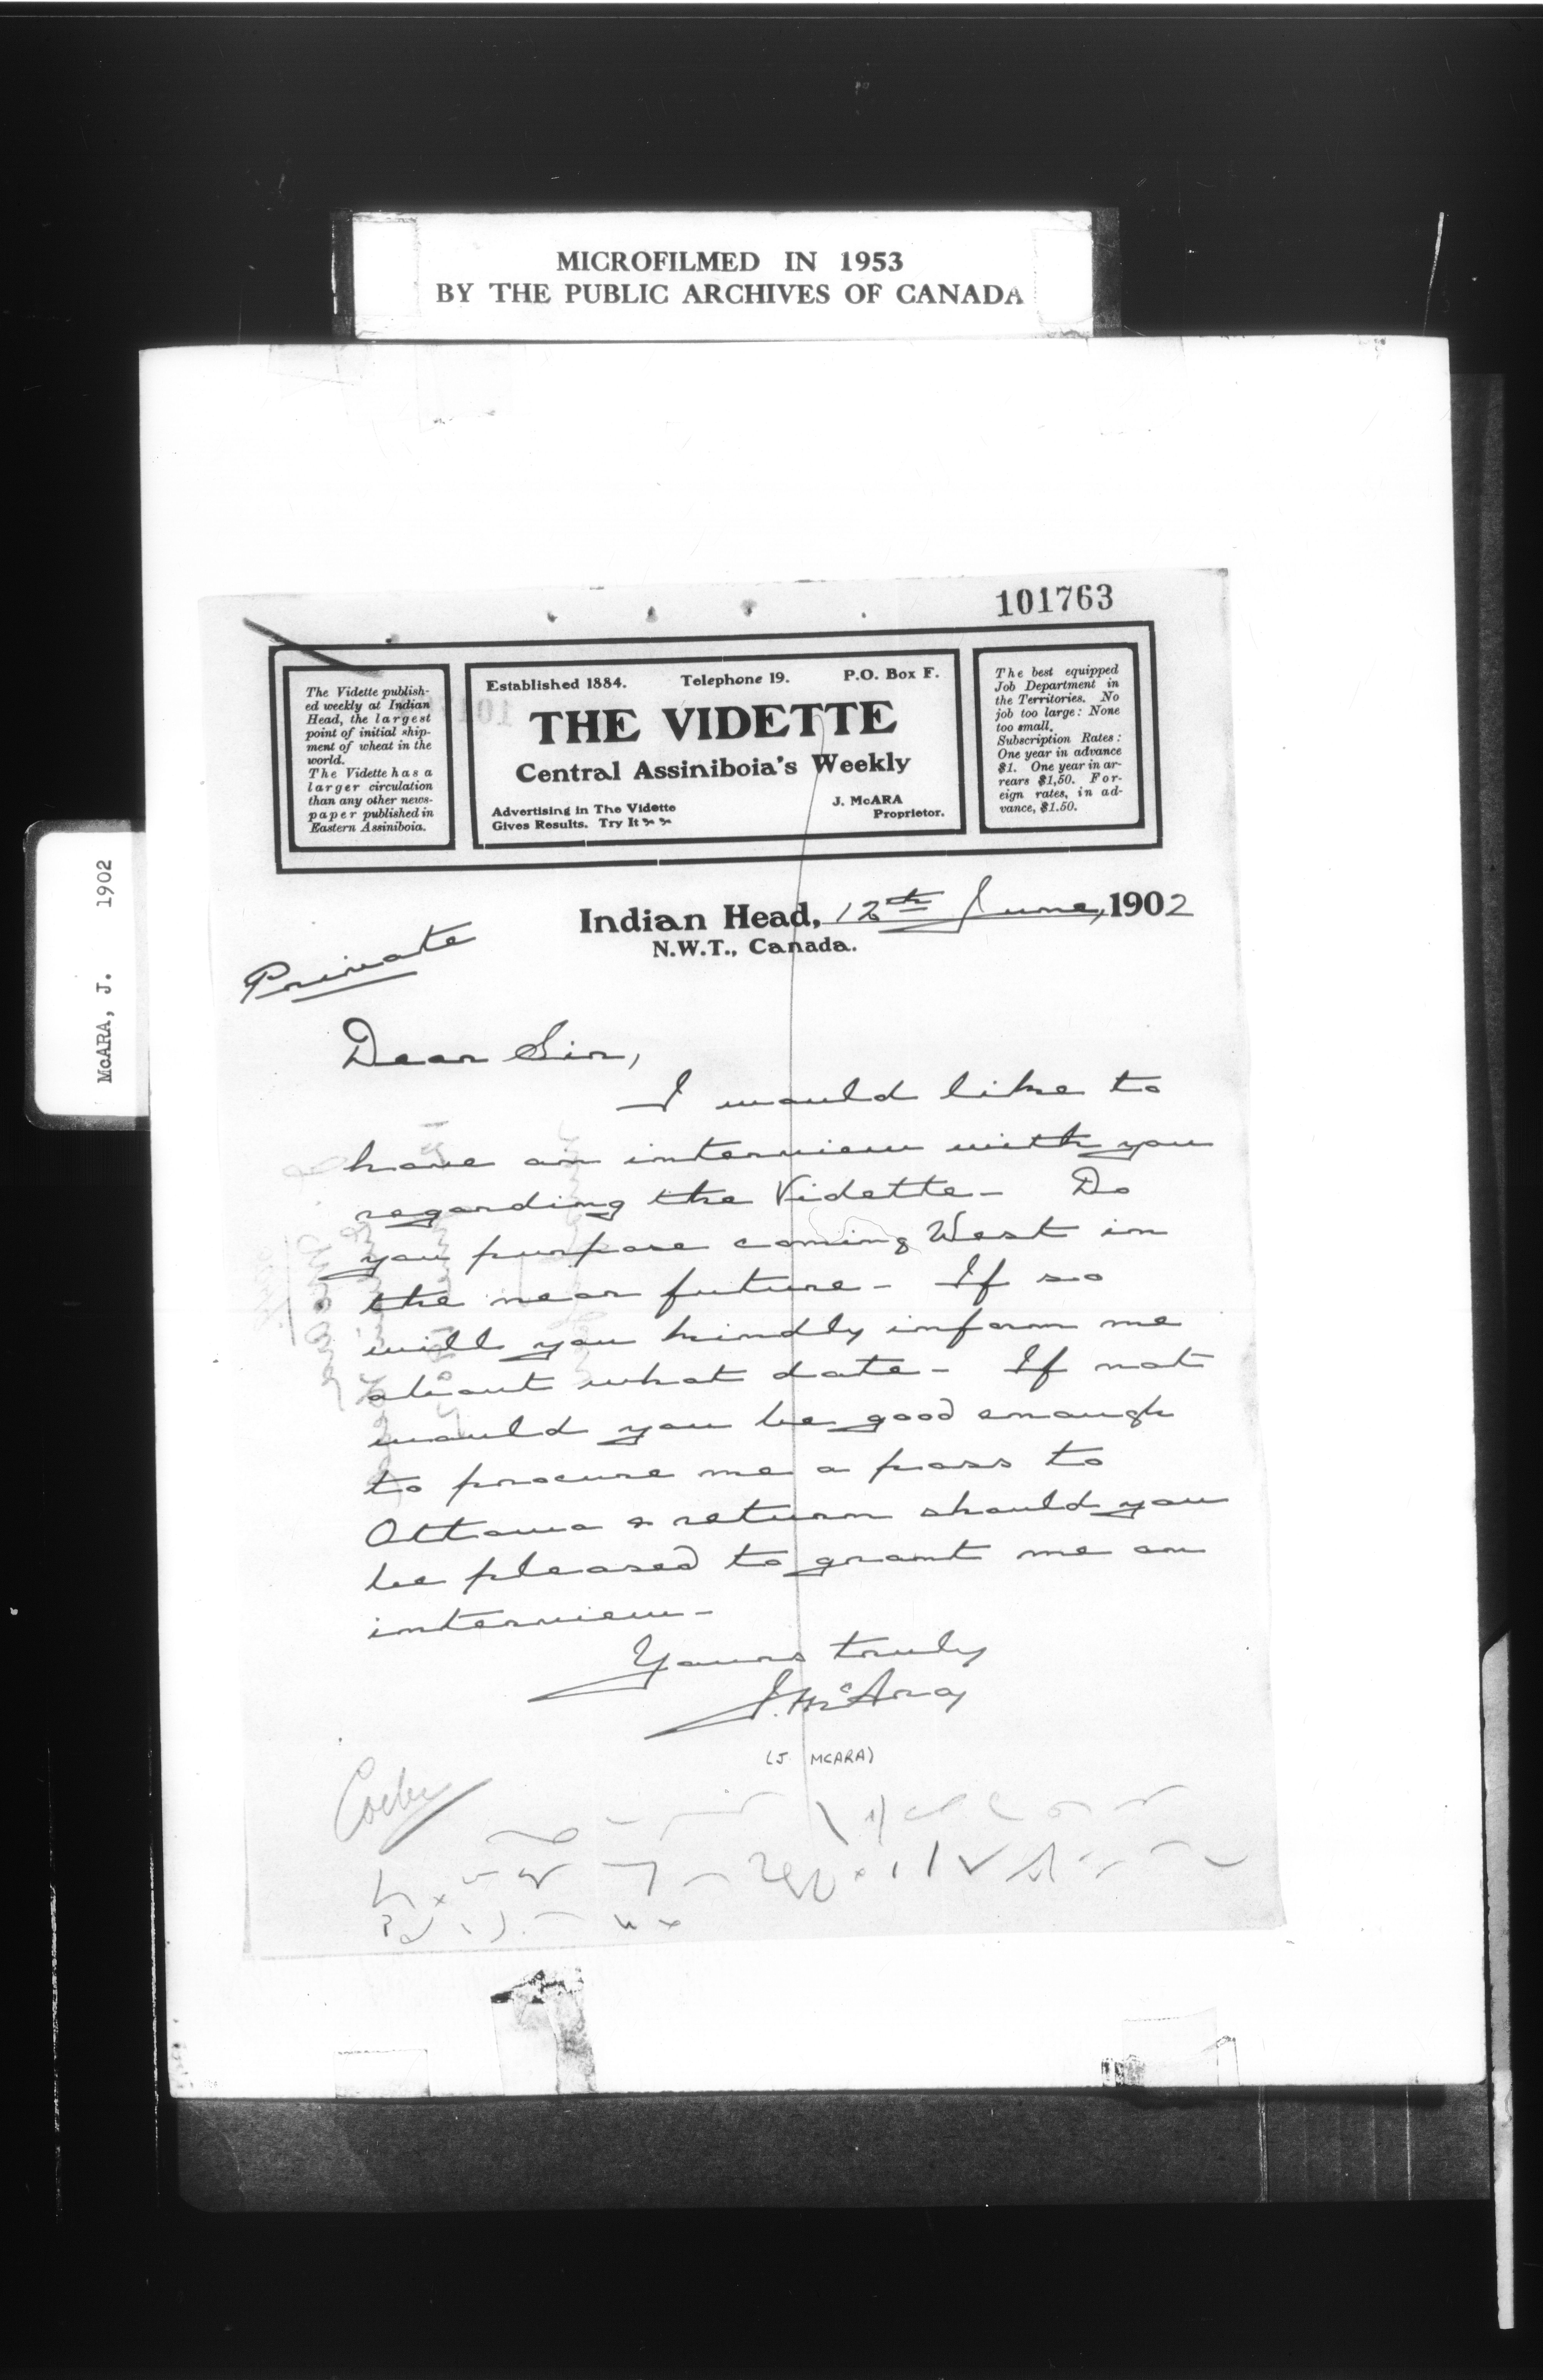 MICROFILMED IN 1953
BY THE PUBLIC ARCHIVES OF CANADA
McARA, J. 1902
101763
The Vidette publish-
ed weekly at Indian
Head, the largest
point of initial ship-
ment of wheat in the
world.
The Vidette has a
larger circulation
than any other news-
paper published in
Eastern Assiniboia.
Established 1884. Telephone 19. P.O. Box F.
THE VIDETTE
Central Assiniboia's Weekly
Advertising in The Vidette
Gives Results. Try It
J. McARA
Proprietor.
The best equipped
Job Department in
the Territories. No
job too large: None
too small.
Subscription Rates:
One year in advance
$1. One year in ar-
rears $1.50. For-
eign rates, in ad-
vance, $1.50.
Indian Head, 12th June, 1902
N.W.T., Canada.
Private
Dear Sir,
I would like to
have an interview with you
regarding the Vidette - Do
you purpose coming West in
the near future - If so
will you kindly inform me
about what date - If not
would you be good enough
to procure me a pass to
Ottawa & return should you
be pleased to grant me an
interview -
Yours truly
J. McAra
(J. MCARA)